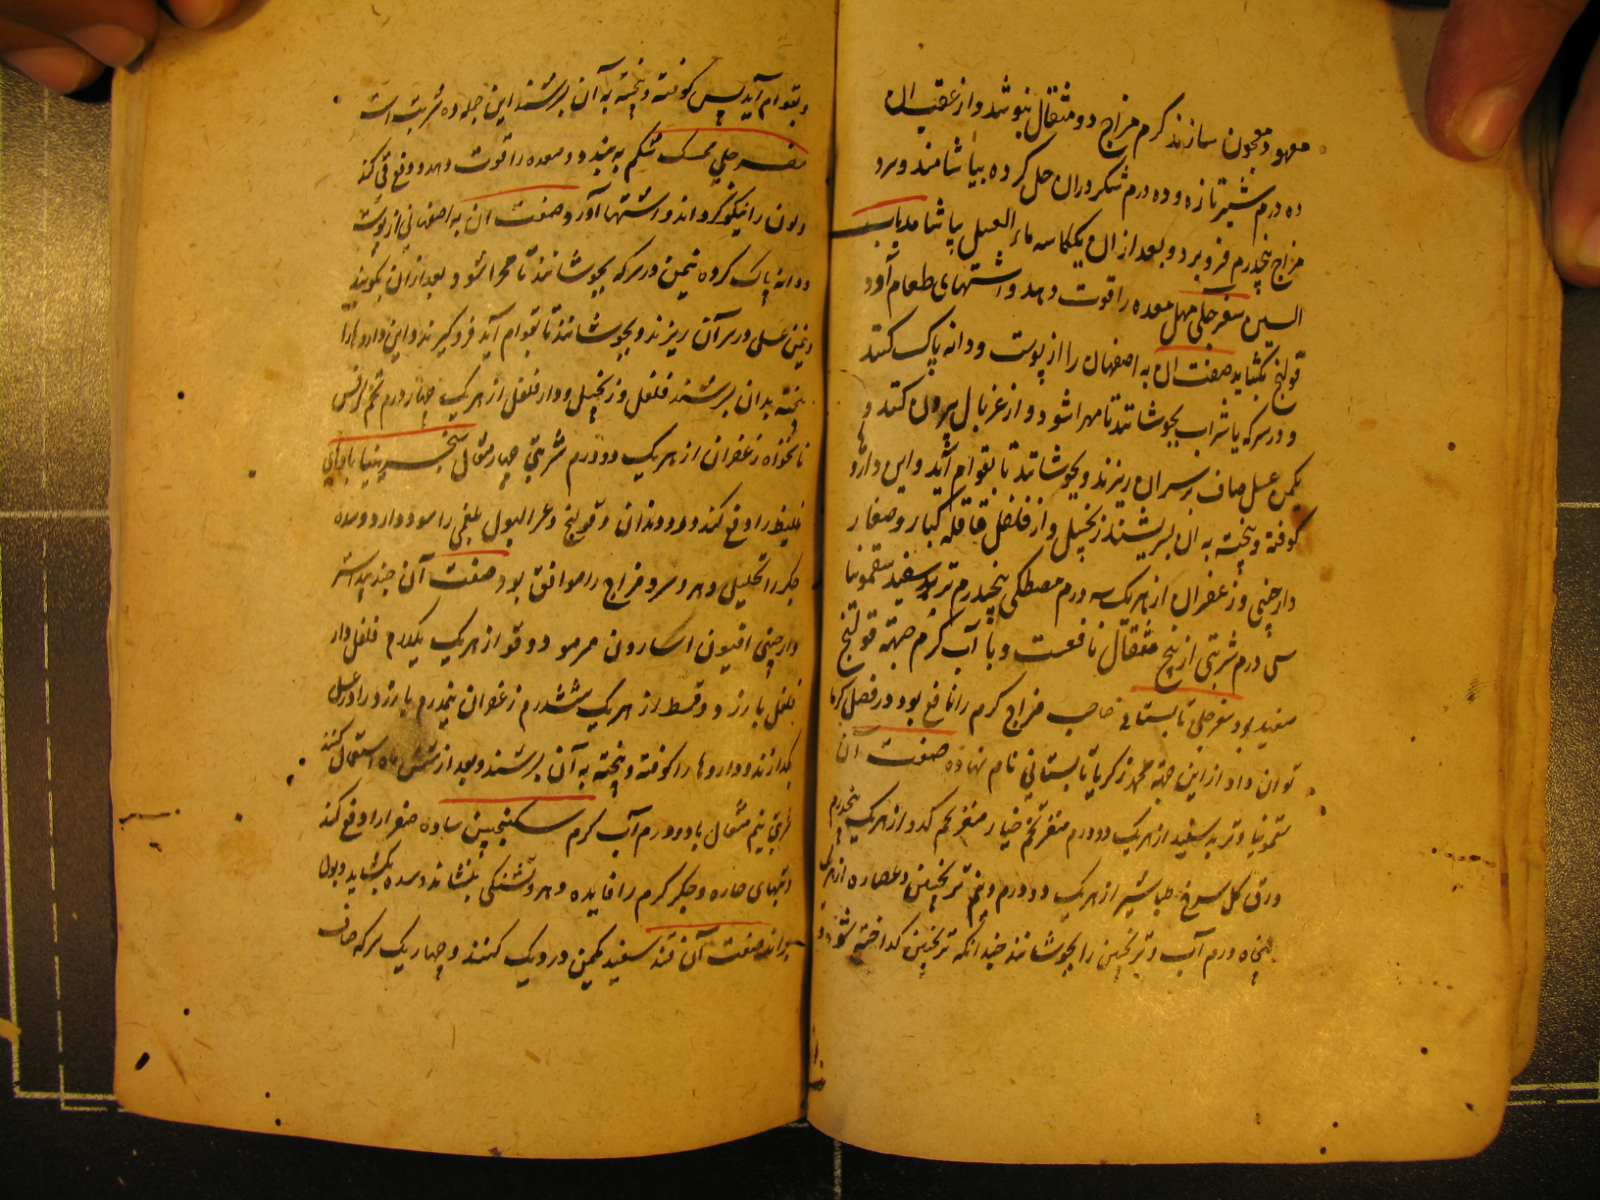 معهود معجون سازند گرم مزاج دو مثقال بنوشد و از عقب ان
ده درم شیر تازه و ده درم شکر دران حل کرده بیاشامند و سرد
مزاج پنجدرم فرو برد و بعد از ان یککاسه ماء العسل بیاشامد باب
السین سفرجلی مسهل معده را قوت دهد و اشتهای طعام آورد
قولنج بکشاید صفت ان به اصفهان را از پوست و دانه پاک کنند
و در سرکه یا شراب بجوشانند تا مهرا شود و از غربال بیرون کنند و
یکمن عسل صاف بر سر ان ریزند و بجوشانند تا بقوام آید و این داروها
کوفته و پخته به ان بسریشند زنجبیل و دار فلفل قاقله کبار و صغار
دارچینی و زعفران از هریک سه درم مصطکی پنجدرم تربد سفید سقمونیا
سی درم شربتی از پنج مثقال نافعست و با آب گرم جهته قولنج
مفید بود سفرجلی تابستانی صاحب مزاج گرم را نافع بود و در فصل گرما
توان داد از این جهته محمد زکریا تابستانی نام نهاده صفت ان
سقمونیا و تربد سفید از هریک دو درم مغز تخم خیار مغز تخم کدو از هریک پنجدرم
ورق کل سرخ طباشیر از هریک دو درم و نیم ترنجبین و عصاره از هریک
پنجاه درم آب و ترنجبین را بجوشانند چندانکه ترنجبین کداخته شود و
و بقوام آید پس کوفته و پخته به آن بسرشند این جمله ده شربت است
سفرجلی ممسک شکم به بندد و معده را قوت دهد و دفع قی کند
و لون را نیکو گرداند و اشتها آورد صفت ان به اصفهانی از پوست
و دانه پاک کرده نیمن در سرکه بجوشانند تا مهرا شود بعد از ان بکوبند
و نیمن عسل در سر آن ریزند و بجوشانند تا بقوام آید فرو گیرند و این داروها را
پخته بدان بسرشند فلفل و زنجبیل و دار فلفل از هریک چهار درم تخم کرفس
نانخواه زعفران از هریک دو درم شربتی چهار مثقال سنجرینیا بادهای
غلیظ را دفع کند و درد دندان و قولنج و عسر البول بلغمی را سود دارد و سده
جکر را تحلیل دهد و سرد مزاج را موافق بود صفت آن جندبیدستر
دارچینی افیون اسارون مو دوقو از هریک یکدرم فلفل دار
فلفل بارزد و قسط از هریک ششدرم زعفران نیمدرم بارزد را در عسل
بکدازند و داروها را کوفته و پخته به آن بسرشند و بعد از شش ماه استعمال کنند
شربتی نیم مثقال با دو درم آب گرم سکنجبین ساده صفرا را دفع کند
و تبهای حاره و جکر گرم را فایده دهد و تشنکی بنشاند و سده بکشاید و بول
براند صفت آن قند سفید یکمن در دیک کنند و چهار یک سرکه صاف